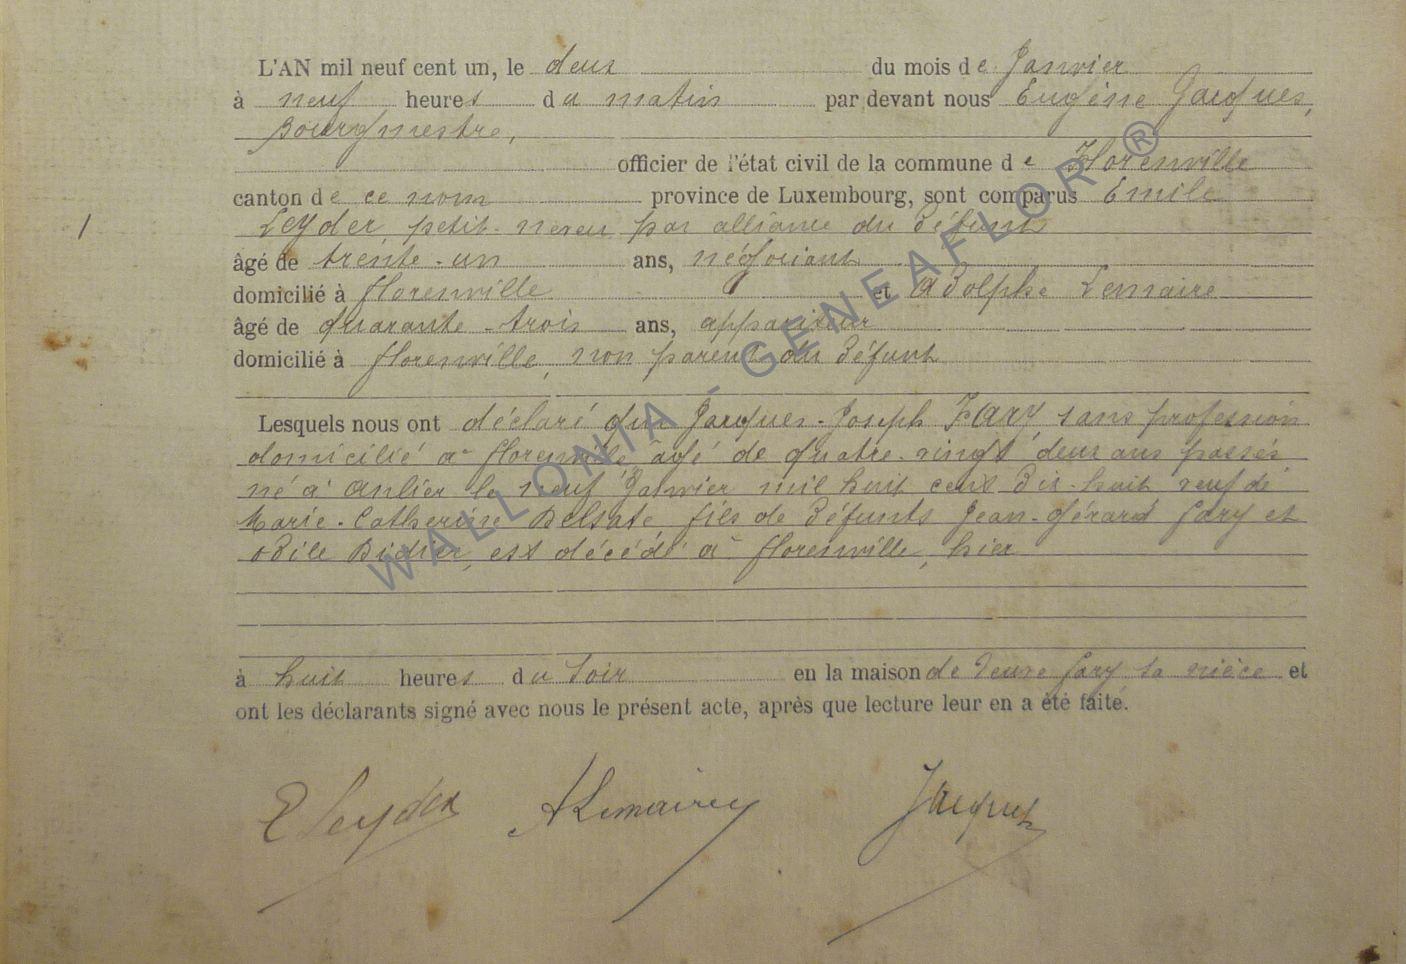 L'AN mil neuf cent un, le deux du mois de Janvier
à neuf heures du matin par devant nous Eugène Jacques,
Bourgmestre,
officier de l'état civil de la commune de Florenville
canton de ce nom province de Luxembourg, sont comparus Emile
Leyder, petit-neveu par alliance du défunt
âgé de trente-un ans, négociant
domicilié à florenville et Adolphe Lemaire
âgé de quarante-trois ans, appariteur
domicilié à florenville, non parent du défunt
Lesquels nous ont déclaré que Jacques-Joseph Fary, sans profession
domicilié à florenville, âgé de quatre-vingt deux ans passés
né à Anlier le neuf Janvier mil huit cent dix-huit veuf de
Marie-Catherine Delsate fils de défunts Jean-Gérard fary et
Odile Didier, est décédé à florenville, hier
à huit heures du soir en la maison de veuve fary sa nièce et
ont les déclarants signé avec nous le présent acte, après que lecture leur en a été faite.
E Leyder A Lemaire Jacques
WALLONIA - GENEAFLOR ®